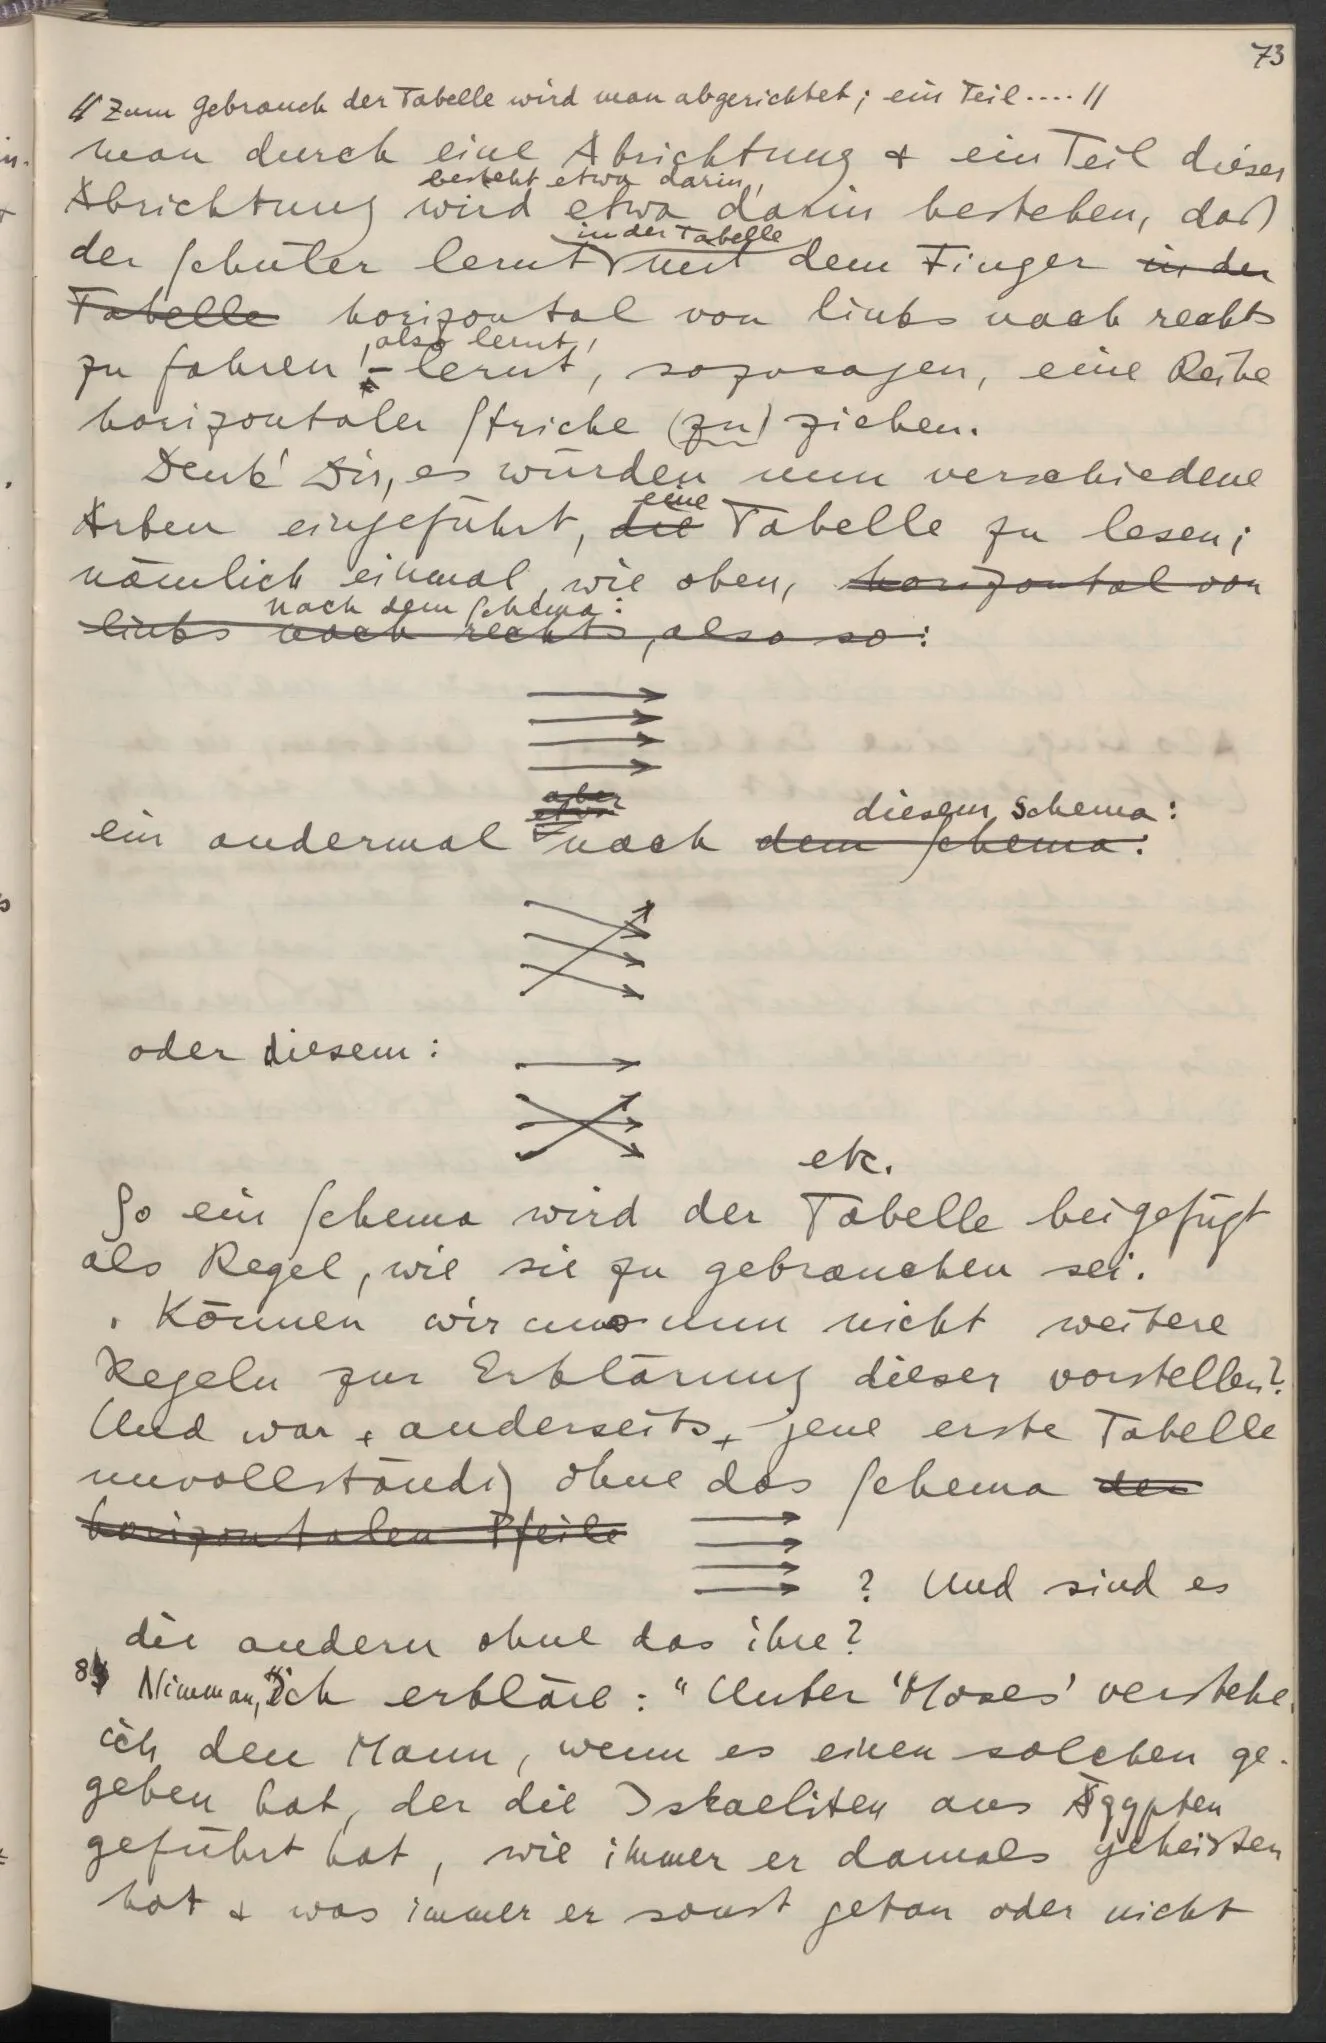 73
// Zum Gebrauch der Tabelle wird man abgerichtet; ein Teil.... //
man durch eine Abrichtung & ein Teil dieser
besteht etwa darin,
Abrichtung wird etwa darin bestehen, daß
in der Tabelle
der Schüler lernt mit dem Finger in der
Tabelle horizontal von links nach rechts
, also lernt,
zu fahren! – lernt, sozusagen, eine Reihe
horizontaler Striche (zu) ziehen.
Denk' Dir, es würden nun verschiedene
eine
Arten eingeführt, die Tabelle zu lesen;
nämlich einmal, wie oben, horizontal von
nach dem Schema:
links nach rechts, also so:
aber
etwa
diesem Schema:
ein andermal nach dem Schema:
oder diesem:
etc.
So ein Schema wird der Tabelle beigefügt
als Regel, wie sie zu gebrauchen sei.
Können wir uns nun nicht weitere
Regeln zur Erklärung dieser vorstellen?
Und war, anderseits, jene erste Tabelle
unvollständig ohne das Schema der
horizontalen Pfeile
? Und sind es
die andern ohne das ihre?
Nimm an, ich erkläre: "Unter 'Moses' verstehe
ich den Mann, wenn es einen solchen ge-
geben hat, der die Israeliten aus Ägypten
geführt hat, wie immer er damals geheißen
hat & was immer er sonst getan oder nicht